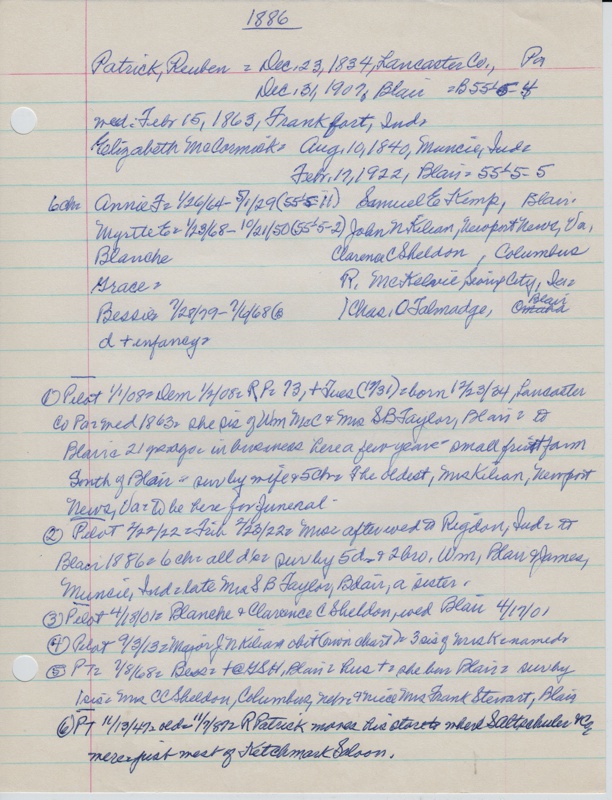 1886
Patrick, Reuben = Dec. 23, 1834, Lancaster Co., Pa
Dec. 31, 1907, Blair = B55-5-4
med: Feb 15, 1863, Frankfort, Ind=
Elizabeth McCormick= Aug. 10, 1840, Muncie, Ind=
Feb. 17, 1922, Blair= 55-5-5
6 ch= Annie F= 1/26/64- 5/1/29 (55-5-11) Samuel E Kemp, Blair=
Myrtle E= 1/23/68- 10/21/50 (55-5-2) John N Kilian, Newport News, Va,
Blanche Clarence C Sheldon, Columbus
Grace= R. McKelvie, City, Ia=
Bessie= 7/28/79- 7/6/68 Chas. O Talmadge, Blair
d + infancy=
① Pilot 1/1/08= Dem 1/2/08= R P= 73, + Tues (12/31) = born 12/23/34, Lancaster
Co Pa= med 1863= she sis of Wm McC & Mrs S B Taylor, Blair= to
Blair 21 yrs ago= in business here a few years= small fruit farm
South of Blair= sur by wife & 5 ch= the oldest, Mrs Kilian, Newport
News, Va= to be here for funeral-
② Pilot 2/22/22= Trib 2/23/22= Muncie after wed to Rigdon, Ind= to
Blair 1886= 6 ch= all d's= sur by 5 d= & 2 bro, Wm, Blair & James,
Muncie, Ind= late Mrs S B Taylor, Blair, a sister.
③ Pilot 4/18/01= Blanche & Clarence C Sheldon, wed Blair 4/17/01
④ Pilot 9/3/13= Major J N Kilian obit (own chart)= 3 sis of Mrs K named=
⑤ PT= 7/8/68= Bess= + @ Blair= hus + she bur Blair= sur by
1 sis= Mrs C C Sheldon, Columbus, nephew & niece Mrs Frank Stewart, Blair
⑥ PT 11/13/47= old= 11/7/87= R Patrick moves his store to where S Altschuler & Co
were= just west of Ketchmark Saloon.